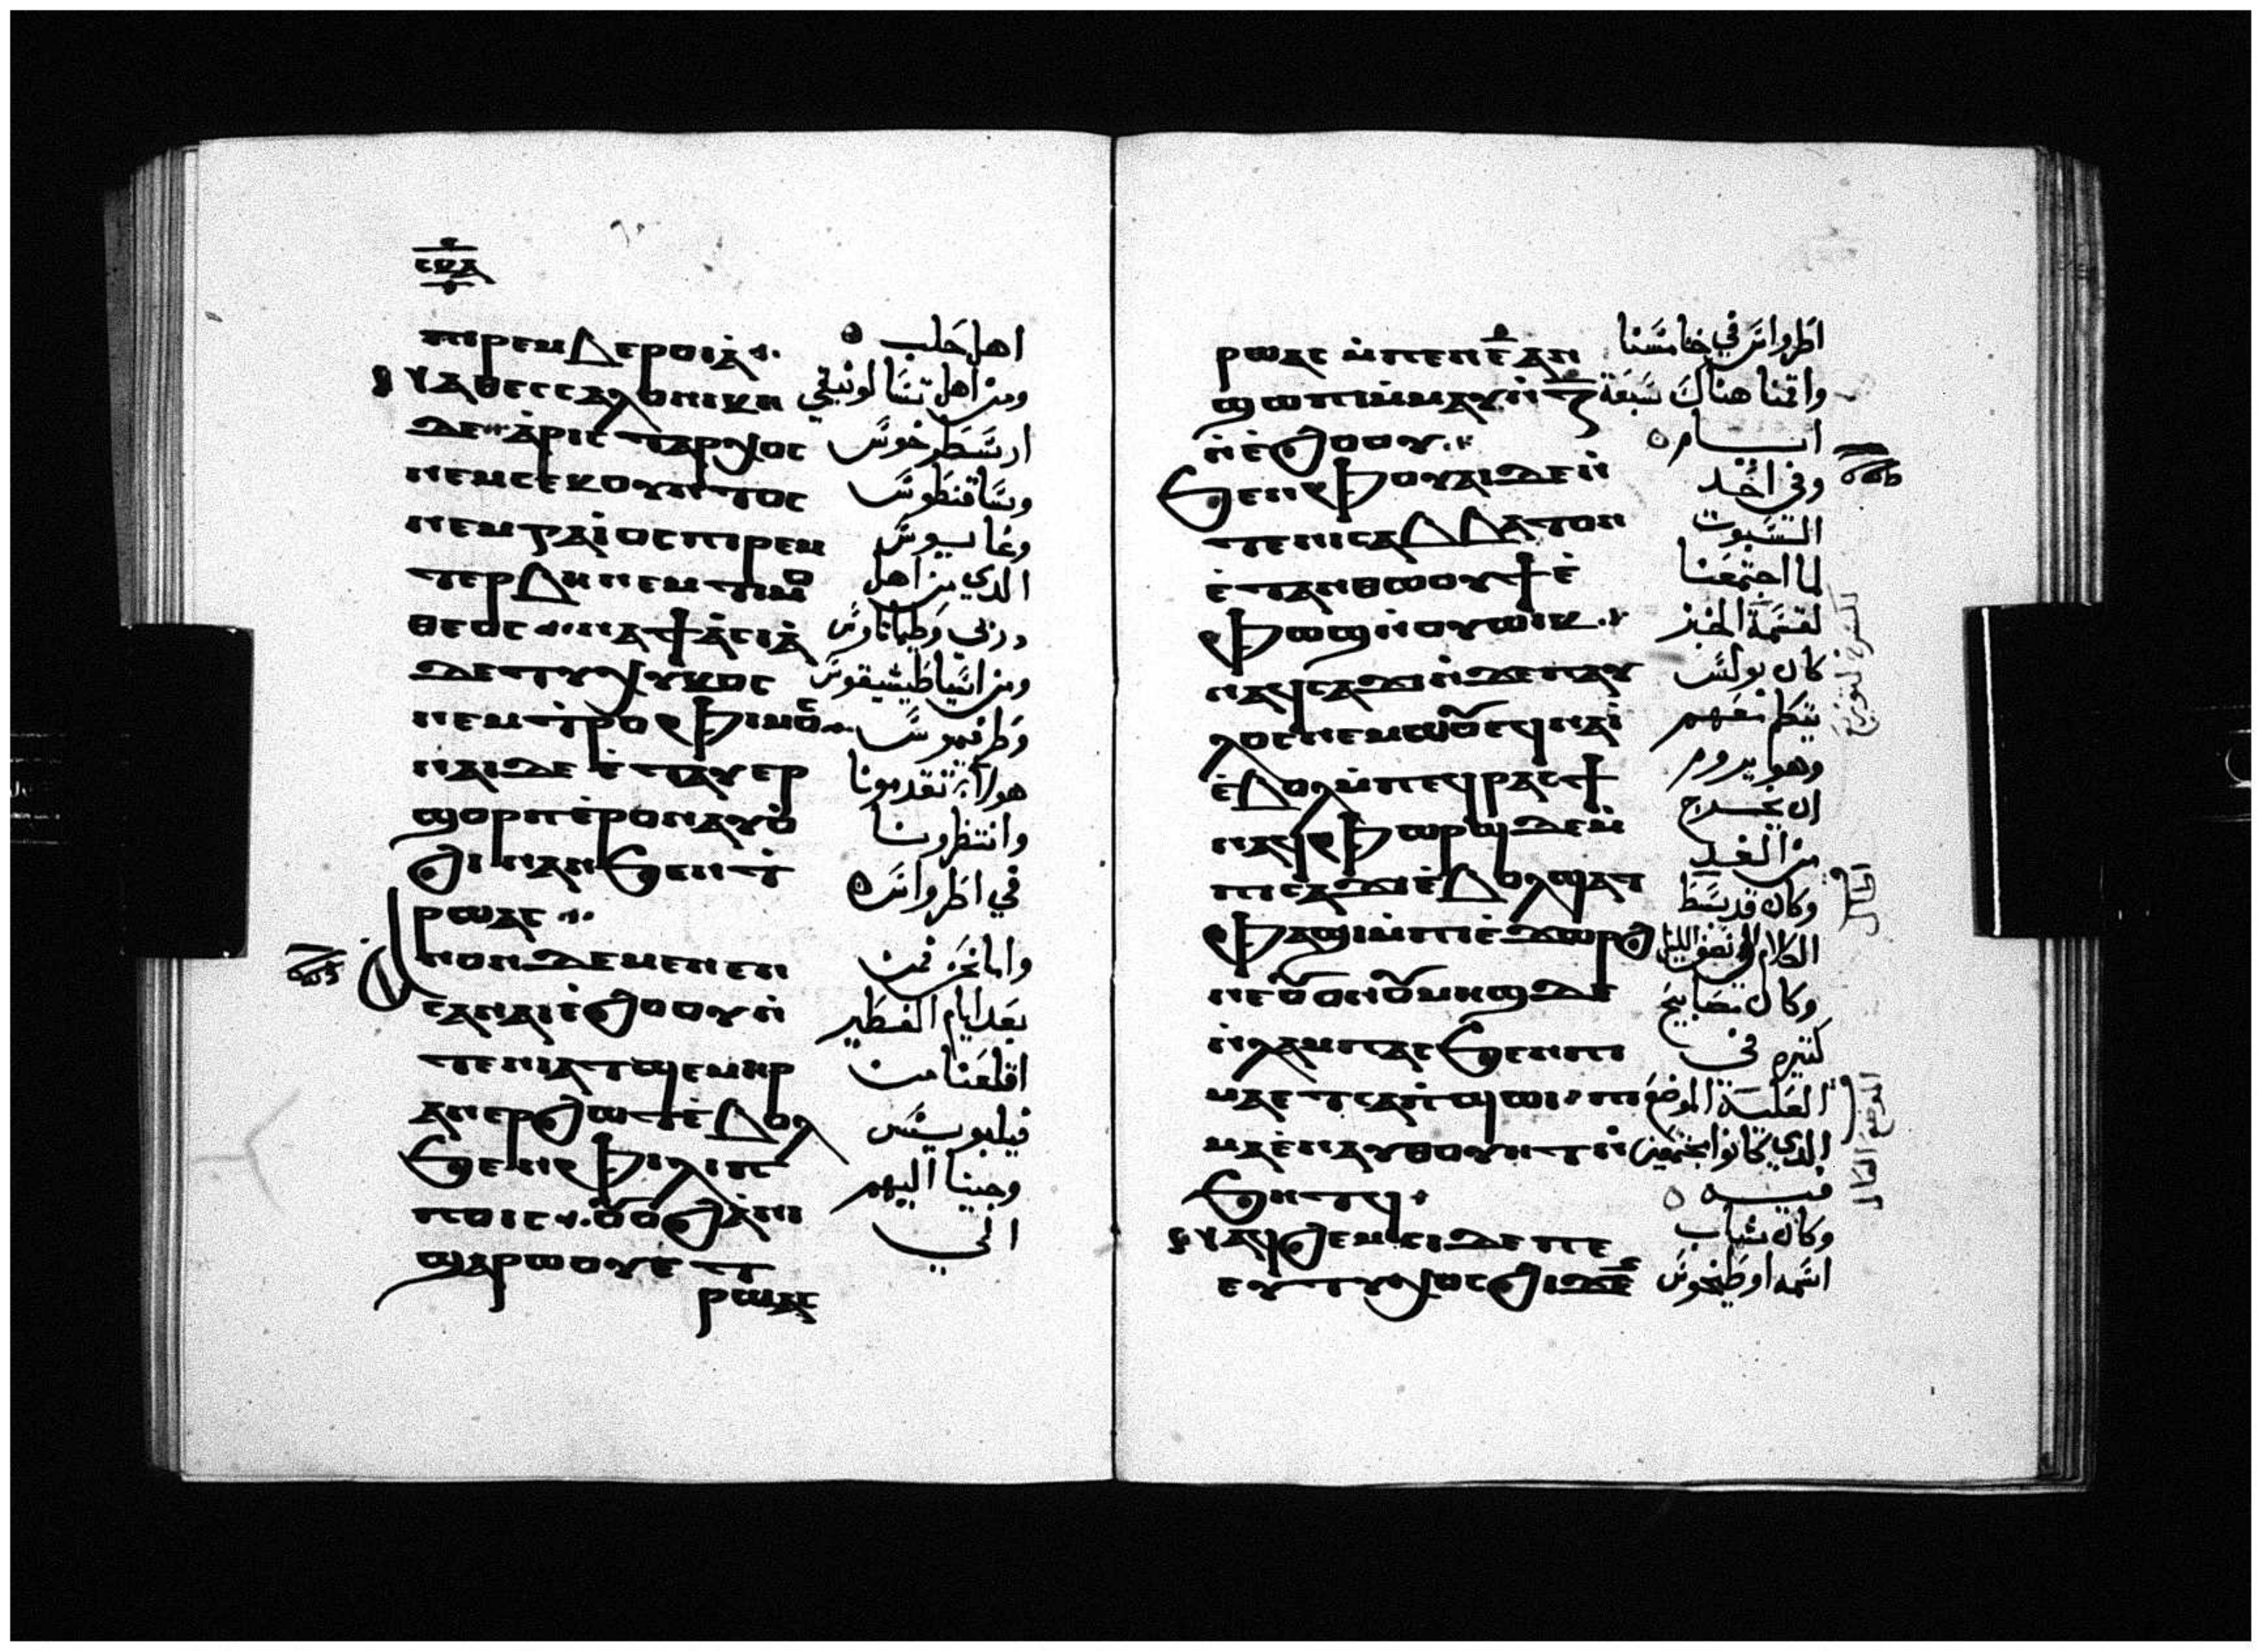 ⲥⲟⲇ
ⲡⲓⲣⲉⲙⲃⲉⲣⲟⲓⲁ̀ اهل حلب
ⲩⲁⲑⲉⲥⲥⲁⲗⲟⲛⲓⲕⲏ ومن اهل تسالونيقي
ⲇⲉ ⲁ̀ⲣⲓⲥⲧⲁⲣⲭⲟⲥ ارسطرخوس
ⲛⲉⲙⲥⲉⲕⲟⲩⲛⲧⲟⲥ وساقنطوس
ⲛⲉⲙⲅⲁⲓ̀ⲟⲥⲡⲓⲣⲉⲙ وغايوس
ⲧⲉⲣⲃⲏⲛⲉⲙⲧⲓⲙⲟ الدي من اهل
ⲑⲉⲟⲥ ⲛⲁϯⲁ̀ⲥⲓⲁ̀ دربي وطيماتاوس
ⲇⲉⲧⲩⲭⲓⲕⲟⲥ ومن اسيا طيشيقوس
ⲛⲉⲙⲧⲣⲟⲫⲓⲙⲟⲥ وطرفيموس
ⲛⲁⲓⲇⲉⲉ̀ⲧⲁⲩⲉⲣ هولاء تقدمونا
ϣⲟⲣⲡⲉ̀ⲣⲟⲛⲁⲩⲟ̀ وانتظرونا
ϩⲓⲛⲁⲛϧⲉⲛⲧ̀ في اطرواس
ⲣⲱⲁⲥ
ⲁⲛⲟⲛⲇⲉⲙⲉⲛⲉⲛ واما نحن فمن
ⲥⲁⲛⲁⲓⲉ̀ϩⲟⲟⲩⲛ̀ بعد ايام الفطير
ⲧⲉⲛⲓⲁⲧϣⲉⲙⲏⲣ اقلعنا من
ⲁⲛⲉⲣϩⲱⲧⲉ̀ⲃⲟⲗ فيلبويس
ϧⲉⲛⲫⲓⲗⲓⲡ وجينا اليهم
ⲡⲟⲓⲥ ⲟⲩⲟϩⲁ̀ⲛⲓ الي
ϣⲁⲣⲱⲟⲩⲉ̀ⲧ
ⲣⲱⲁⲥ
ⲣⲱⲁⲥ ⲙ̀ⲡⲉⲛⲉ̅ⲁⲛ اطرواس في خامسنا
ϣⲱⲡⲓⲙ̀ⲙⲁⲩⲛ̀ⲍ̅ واقمنا هناك سبعة
ⲛ̀ⲉ̀ϩⲟⲟⲩ ايام
ϧⲉⲛⲫⲟⲩⲁⲓⲇⲉⲛ̀ وفي احد
ⲧⲉⲛⲓⲥⲁⲃⲃⲁⲧⲟⲛ السبوت
ⲉ̀ⲧⲁⲛⲑⲱⲟⲩϯⲉ̀ لما اجتمعنا
ⲫⲱϣⲛ̀ⲟⲩⲱⲓⲕ لقسمة الخبز
ⲛⲁϥⲥⲁϫⲓⲛ̀ϫⲉⲡⲁⲩ كان بولس
ⲗⲟⲥⲛⲉⲙⲱⲟⲩⲉϥⲛⲁⲓ̀ يتكلم معهم
ⲉ̀ⲃⲟⲗⲙ̀ⲡⲉϥⲣⲁⲥϯ وهو يروم ان يخرج
ⲛⲁϥⲫⲱⲣϣⲇⲉⲙ̀ من الغد
ⲡⲥⲁϫⲓⲉ̀ⲃⲟⲗϣⲁⲧ وكان قد بسط
ⲫⲁϣⲓⲙ̀ⲡⲓⲉ̀ϫⲱⲣϩ الكلام الي نصف الليل
ⲛⲉⲟⲩⲟⲛⲟⲩⲙⲏϣⲇⲉ وكان مصابيح
ⲛ̀ⲗⲁⲙⲡⲁⲥϧⲉⲛⲡⲓ كتيره في
ⲙⲁⲉⲧⲥⲁⲡ̀ϣⲱⲓ ⲡⲓ العلية الموضع
ⲙⲁⲉ̀ⲛⲁⲩⲑⲟⲩⲏⲧⲛ̀ الدي كانوا مجتمعين
ϧⲏⲧϥ فيه
ⲛⲁϥϩⲉⲙⲥⲓⲇⲉⲡⲉ وكان شاب
ⲉⲩⲧⲩⲭⲟⲥϩⲓϫⲉⲛ اسمه اوطيخوس